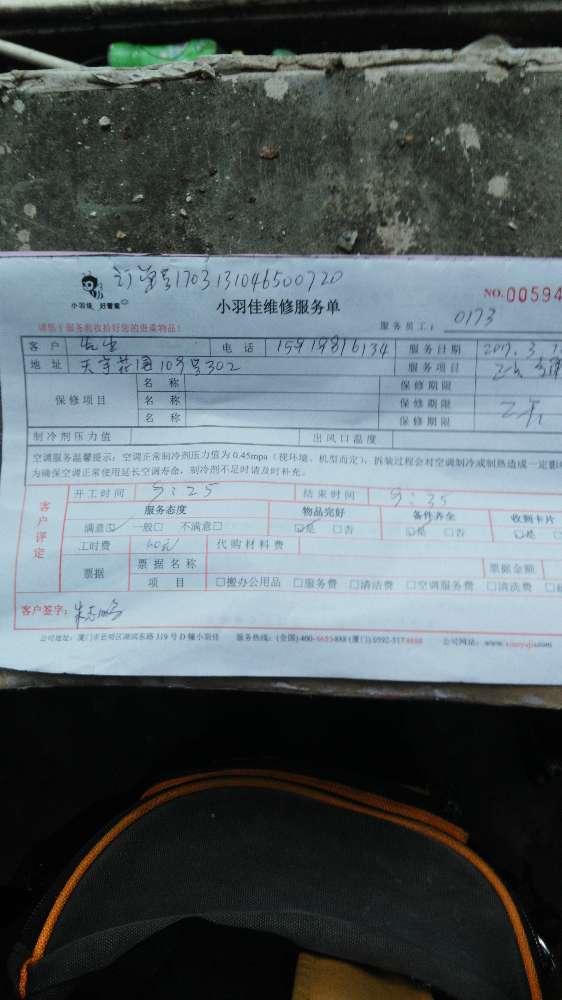 订单号1703131046500720
小羽佳 好管家
小羽佳维修服务单
NO.00594
服务员工: 0173
请您(服务前收拾好您的贵重物品)
客户 先生 电话 服务日期 2017.3.1
地址 天宇花园10号302 服务项目
保修项目 名称 保修期限
名称 保修期限
名称 保修期限
制冷剂压力值 出风口温度
空调服务温馨提示:空调正常制冷剂压力值为0.45mpa(视环境、机型而定),拆装过程会对空调制冷或制热造成一定影
为确保空调正常使用延长空调寿命,制冷剂不足时请及时补充。
客户评定
开工时间 9:25 结束时间 9:35
服务态度 物品完好 备件齐全 收到卡片
满意☑ 一般□ 不满意□ ☑是 □否 ☑是 □否 ☑是
工时费 60元 代购材料费
票据 票据名称 票据金额
项目 □搬办公用品 □服务费 □清洁费 □空调服务费 □清洗费
客户签字:
公司地址:厦门市思明区湖滨东路319号D幢小羽佳 服务热线:(全国)400-6655888 (厦门)0592-5178888 公司网站:www.xiaoyujia.com